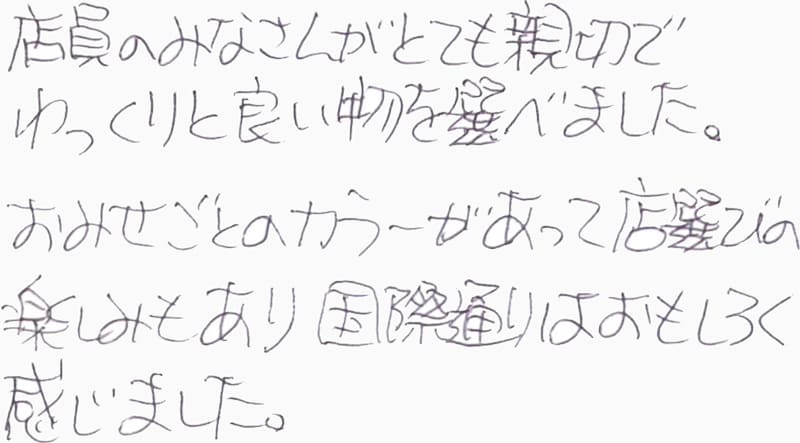 店員のみなさんがとても親切で
ゆっくりと良い物を選べました。
おみせごとのカラーがあって店選びの
楽しみもあり国際通りはおもしろく
感じました。